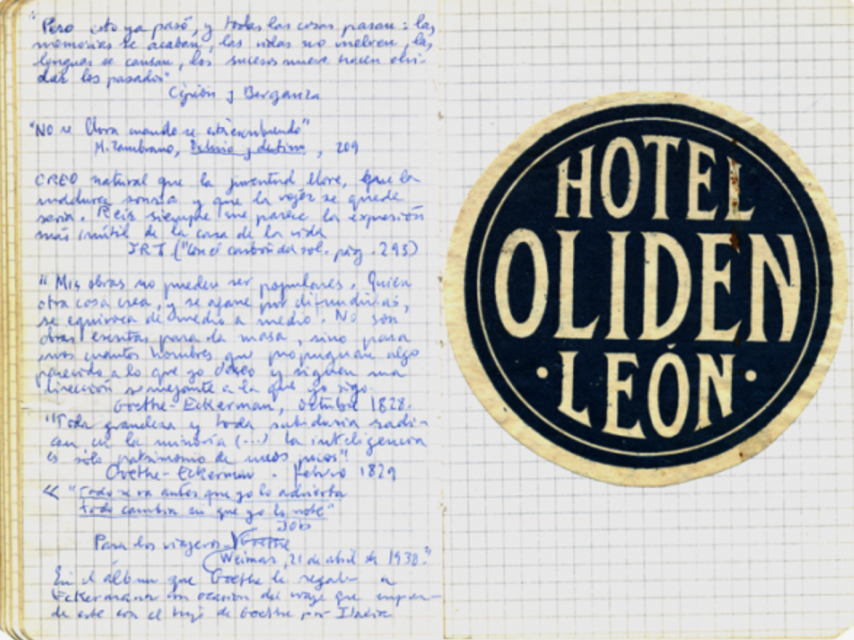 "Pero esto ya pasó, y todas las cosas pasan: las
memorias se acaban, las vidas no vuelven, las
lenguas se cansan, los sucesos nuevos hacen olvi-
dar los pasados"
Cipión y Berganza
"NO se llora cuando se está escribiendo"
M. Zambrano, Delirio y destino, 209
CREO natural que la juventud llore, que la
madurez sonría y que la vejez se quede
seria. Reír siempre me parece la expresión
más inútil de la cara de la vida
JRJ ("Con el carbón del sol", pág. 293)
"Mis obras no pueden ser populares. Quien
otra cosa crea, y se afane por difundirlas,
se equivoca de medio a medio. No son
obras escritas para la masa, sino para
unos cuantos hombres que propugnan algo
parecido a lo que yo deseo y siguen una
dirección semejante a la que yo sigo.
Goethe-Eckerman, octubre 1828.
"Toda grandeza y toda sabiduría radi-
can en la minoría (...) la inteligencia
es sólo patrimonio de unos pocos"
Goethe-Eckerman. febrero 1829
<< "Todo se va antes que yo lo advierta
todo cambia sin que yo lo note"
JOB
Para los viajeros. Goethe
(Weimar, 21 de abril de 1830."
En el álbum que Goethe le regaló a
Eckermann con ocasión del viaje que empren-
de este con el hijo de Goethe por Italia
HOTEL
OLIDEN
· LEÓN ·